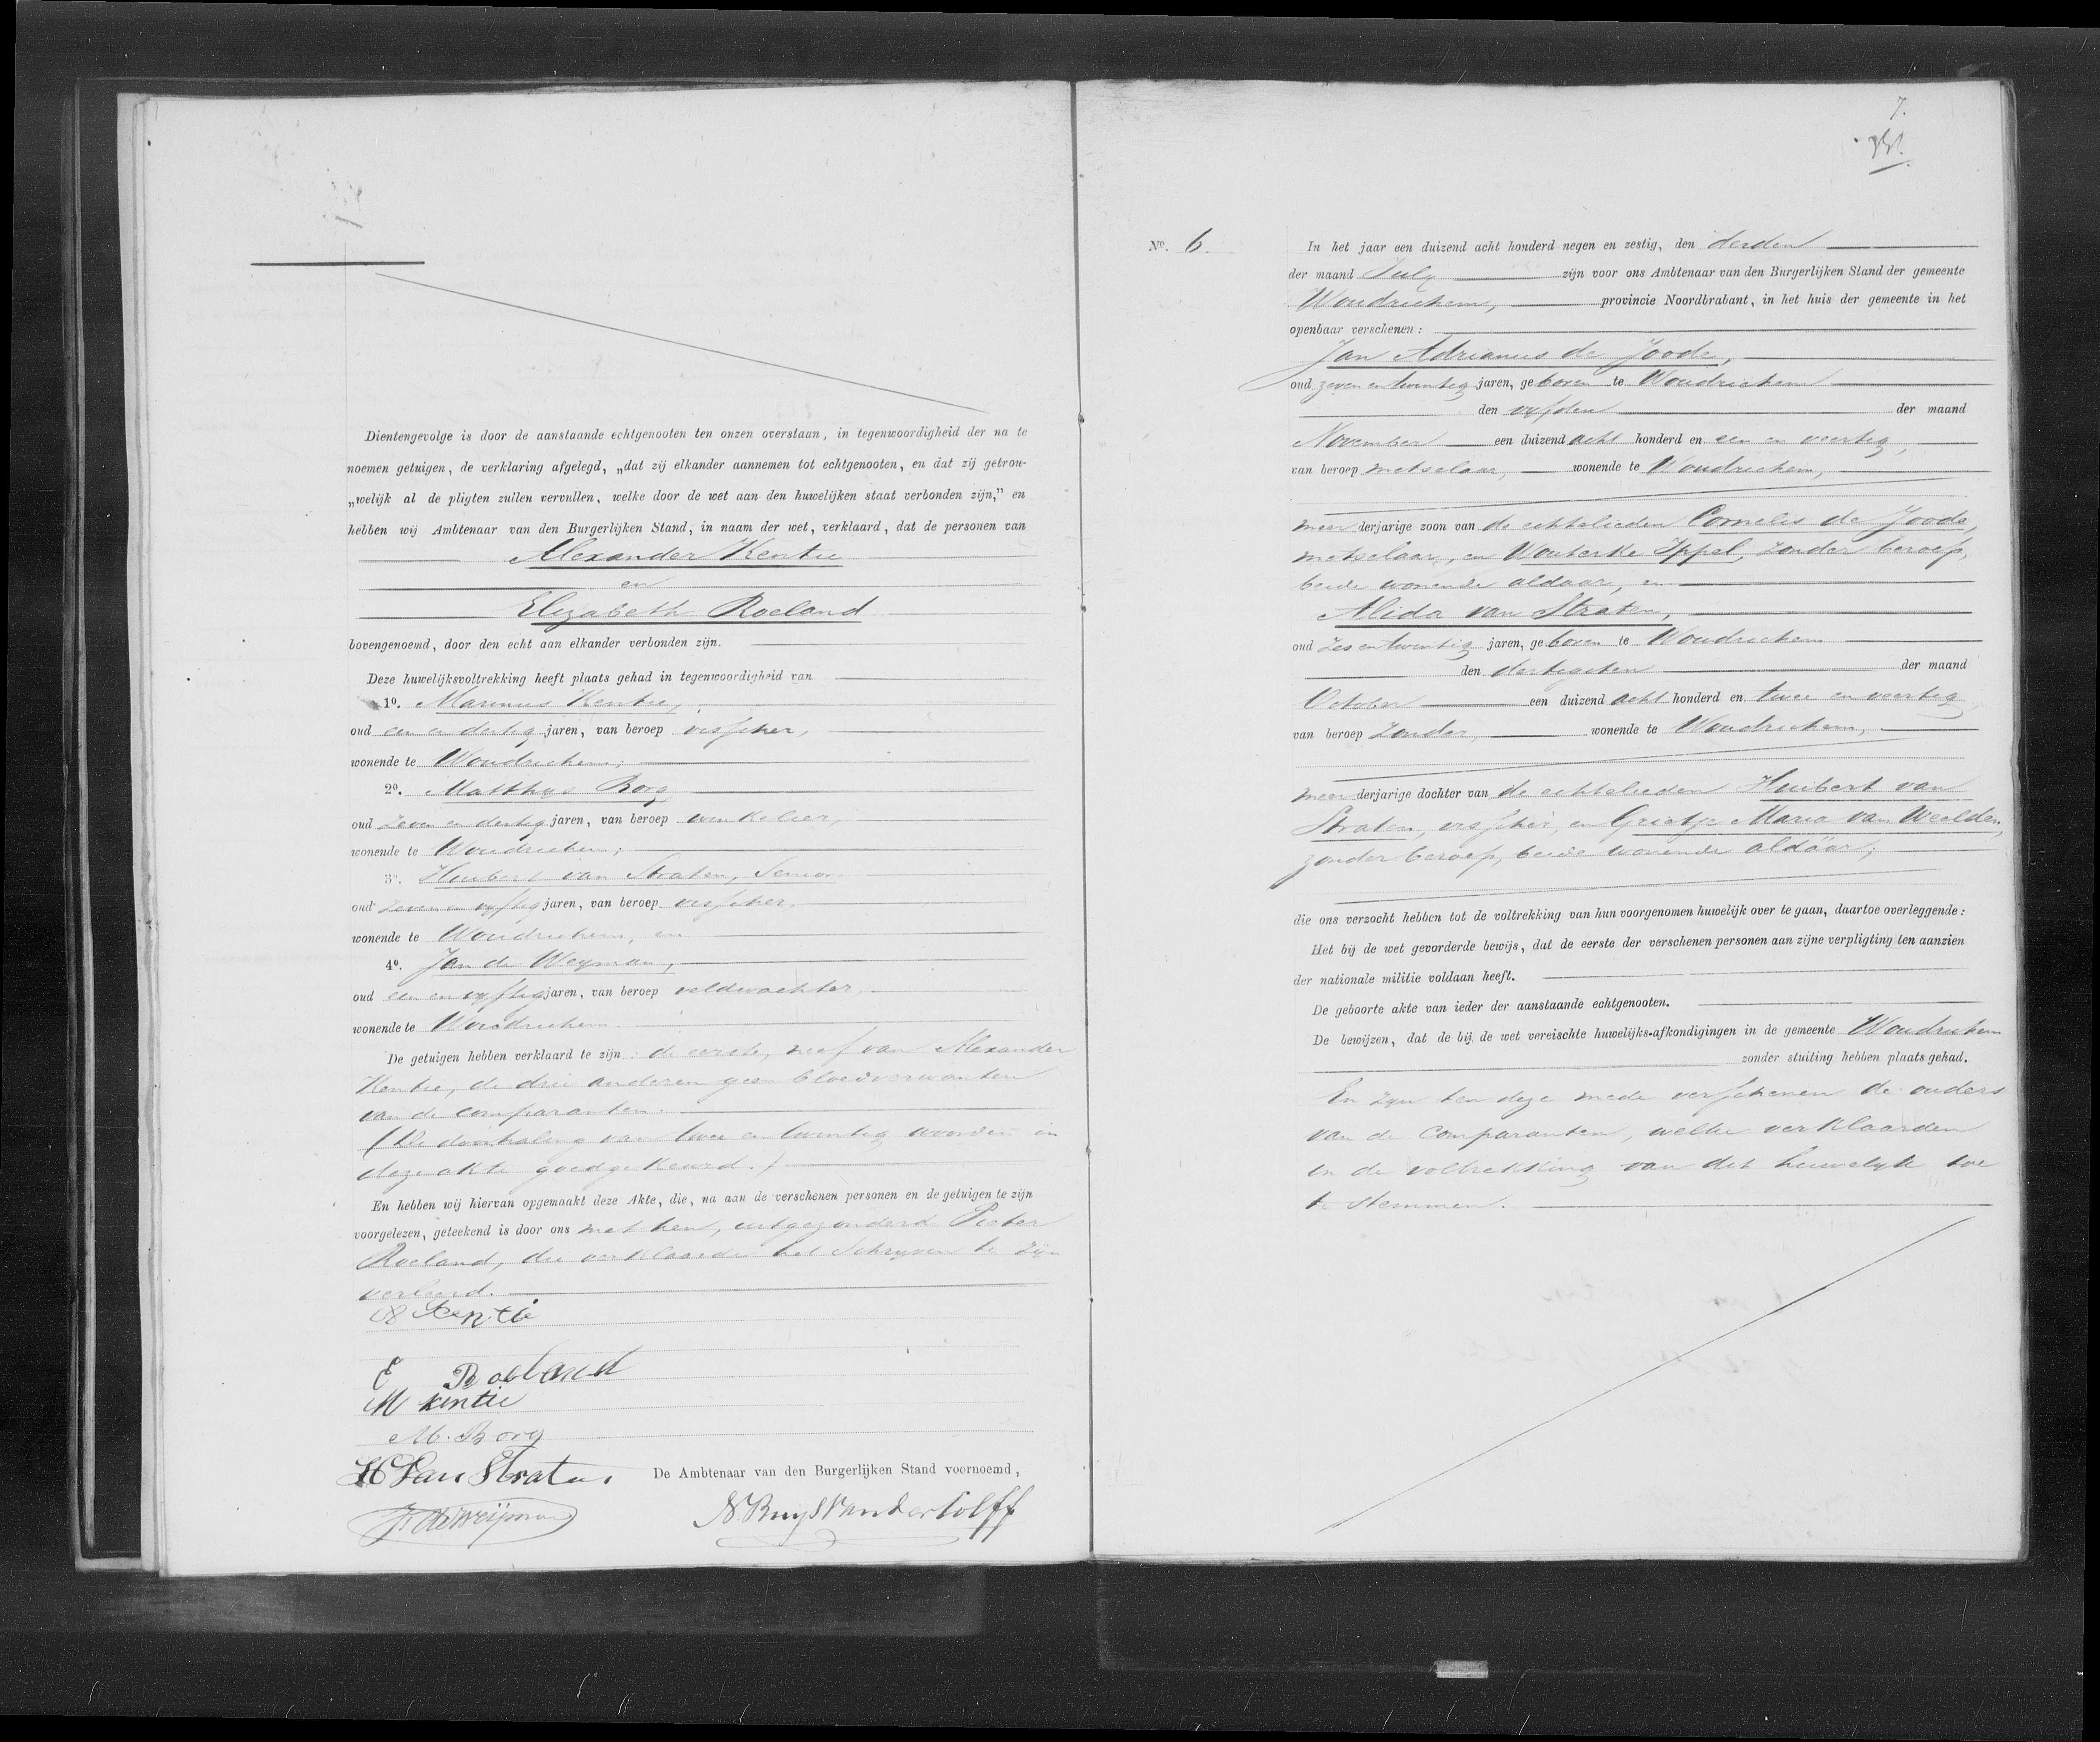 Dientengevolge is door de aanstaande echtgenooten ten onzen overstaan, in tegenwoordigheid der na te
noemen getuigen, de verklaring afgelegd, „dat zij elkander aannemen tot echtgenooten, en dat zij getrou-
„welijk al de pligten zullen vervullen, welke door de wet aan den huwelijken staat verbonden zijn,” en
hebben wij Ambtenaar van den Burgerlijken Stand, in naam der wet, verklaard, dat de personen van
Alexander Kentie
en
Elizabeth Roeland
bovengenoemd, door den echt aan elkander verbonden zijn.
Deze huwelijksvoltrekking heeft plaats gehad in tegenwoordigheid van
1º. Marinus Kentie,
oud een en dertig jaren, van beroep visscher,
wonende te Woudrichem;
2º. Matthys Borg,
oud zeven en dertig jaren, van beroep winkelier,
wonende te Woudrichem;
3º. Huibert van Straten, Senior
oud zeven en vyftig jaren, van beroep visscher,
wonende te Woudrichem, en
4º. Jan de Weyman,
oud een en vyftig jaren, van beroep veldwachter,
wonende te Woudrichem.
De getuigen hebben verklaard te zijn de eerste, neef van Alexander
Kentie, de drie anderen geen bloedverwanten
van de comparanten.
(De doorhaling van twee en twintig woorden in
deze akte goedgekeurd.)
En hebben wij hiervan opgemaakt deze Akte, die, na aan de verschenen personen en de getuigen te zijn
voorgelezen, geteekend is door ons met hen, uitgezonderd Pieter
Roeland, die verklaarde het schryven te zyn
verleerd.
A Kentie
E Roeland
M kentie
M. Borg
H Van Straten
De Ambtenaar van den Burgerlijken Stand voornoemd,
J de Weijman
N. Ruys van der Colff
7.
Nº. 6.
In het jaar een duizend acht honderd negen en zestig, den derden
der maand July zijn voor ons Ambtenaar van den Burgerlijken Stand der gemeente
Woudrichem, provincie Noordbrabant, in het huis der gemeente in het
openbaar verschenen:
Jan Adrianus de Joode,
oud zeven en twintig jaren, geboren te Woudrichem
den vyfden der maand
November een duizend acht honderd en een en veertig,
van beroep metselaar, wonende te Woudrichem,
meerderjarige zoon van de echtelieden Cornelis de Joode,
metselaar, en Wouterke Ippel, zonder beroep,
beide wonende aldaar, en
Alida van Straten,
oud zes en twintig jaren, geboren te Woudrichem
den dertigsten der maand
October een duizend acht honderd en twee en veertig
van beroep zonder, wonende te Woudrichem,
meerderjarige dochter van de echtelieden Huibert van
Straten, visscher, en Grietje Maria van Weelden,
zonder beroep, beide wonende aldaar;
die ons verzocht hebben tot de voltrekking van hun voorgenomen huwelijk over te gaan, daartoe overleggende:
Het bij de wet gevorderde bewijs, dat de eerste der verschenen personen aan zijne verpligting ten aanzien
der nationale militie voldaan heeft.
De geboorte akte van ieder der aanstaande echtgenooten.
De bewijzen, dat de bij de wet vereischte huwelijks-afkondigingen in de gemeente Woudrichem
zonder stuiting hebben plaats gehad.
En zyn ten deze mede verschenen de ouders
van de comparanten, welke verklaarden
in de voltrekking van dit huwelyk toe
te stemmen.